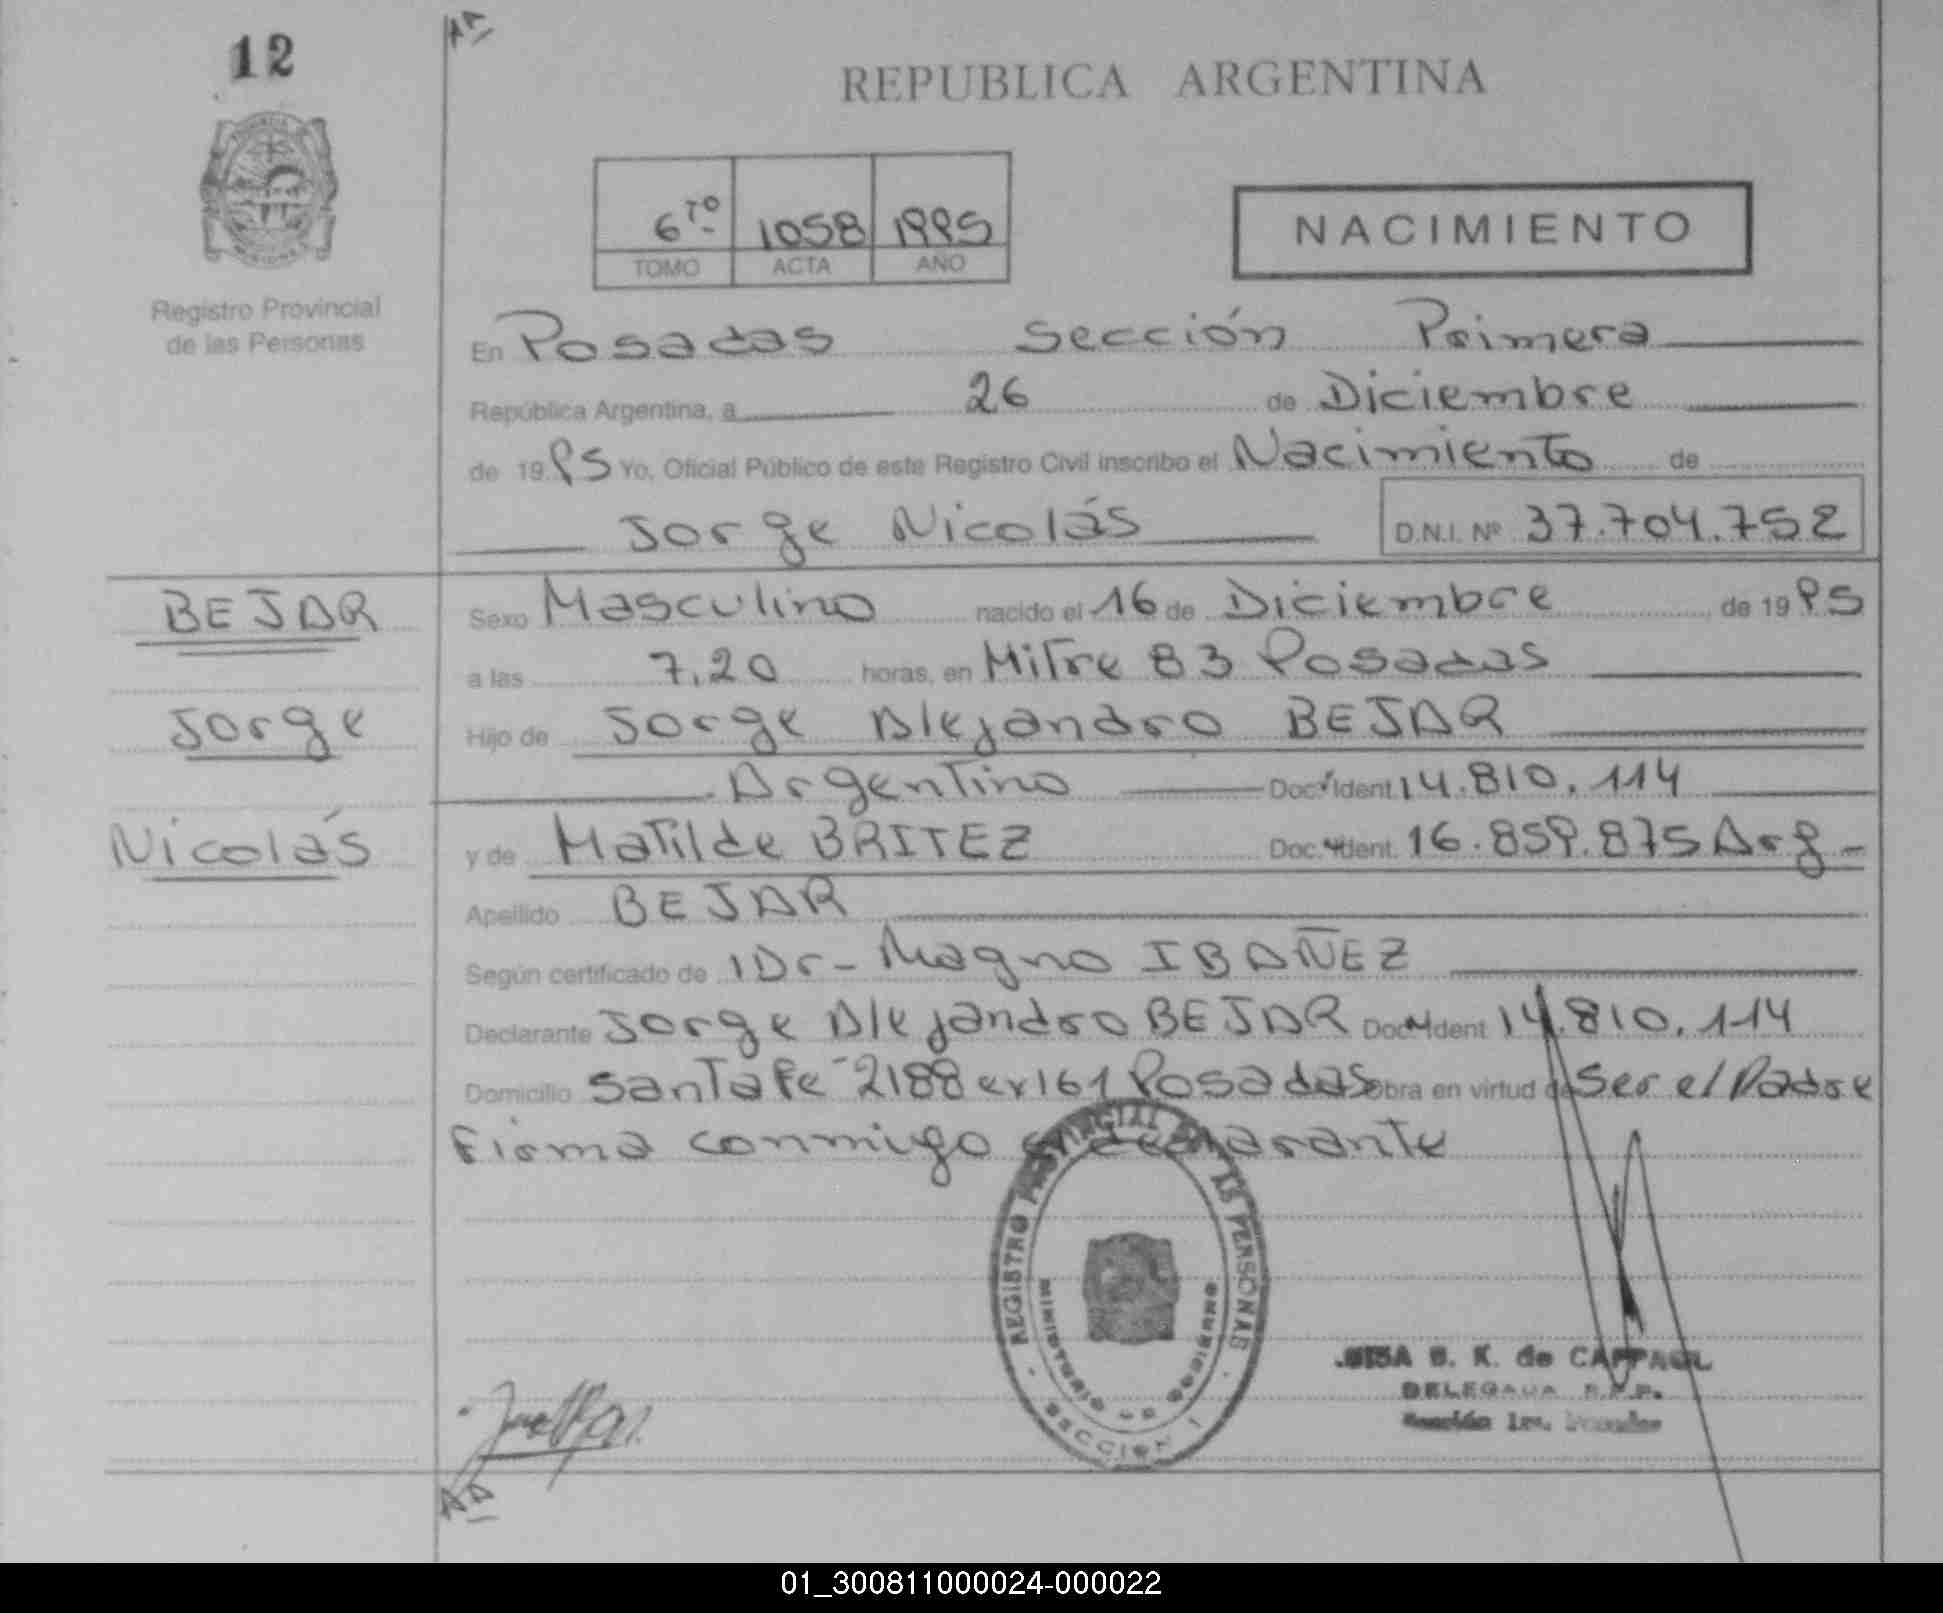 12
REPUBLICA ARGENTINA
6TO 1058 1995
TOMO ACTA AÑO
NACIMIENTO
Registro Provincial
de las Personas
En Posadas Sección Primera
República Argentina, a 26 de Diciembre
de 1995 Yo, Oficial Público de este Registro Civil inscribo el Nacimiento de
Jorge Nicolás D.N.I. Nº 37.704.752
BEJAR
Sexo Masculino nacido el 16 de Diciembre de 1995
a las 7,20 horas, en Mitre 83 Posadas
Jorge
Hijo de Jorge Alejandro BEJAR
Argentino Doc. Ident. 14.810.114
Nicolás
y de Matilde BRITEZ Doc. Ident. 16.859.875 Arg-
Apellido BEJAR
Según certificado de Dr- Magno IBAÑEZ
Declarante Jorge Alejandro BEJAR Doc. Ident 14.810.114
Domicilio Santa Fe 2188 Posadas Obra en virtud de Ser el Padre
Firma conmigo el declarante
REGISTRO PROVINCIAL DE LAS PERSONAS
MINISTERIO DE GOBIERNO
SECCION 1
S. K. de
DELEGADA R.P.P.
Sección 1ra. Posadas
01_300811000024-000022